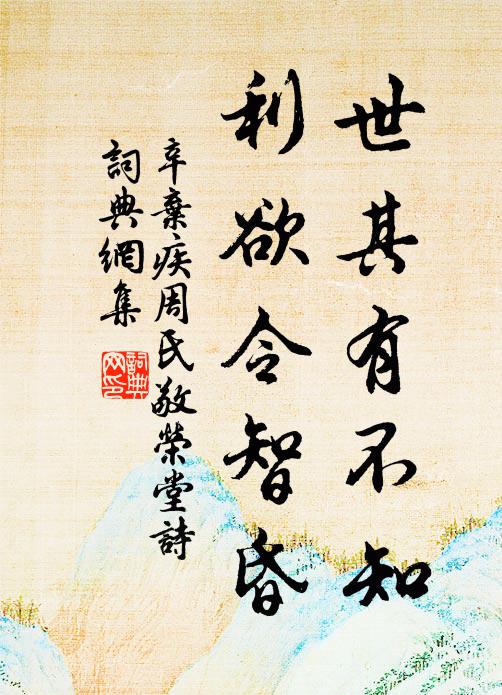 世其有不知
利欲令智昏
辛棄疾周氏敬榮堂詩
詞典網集
詞典网印